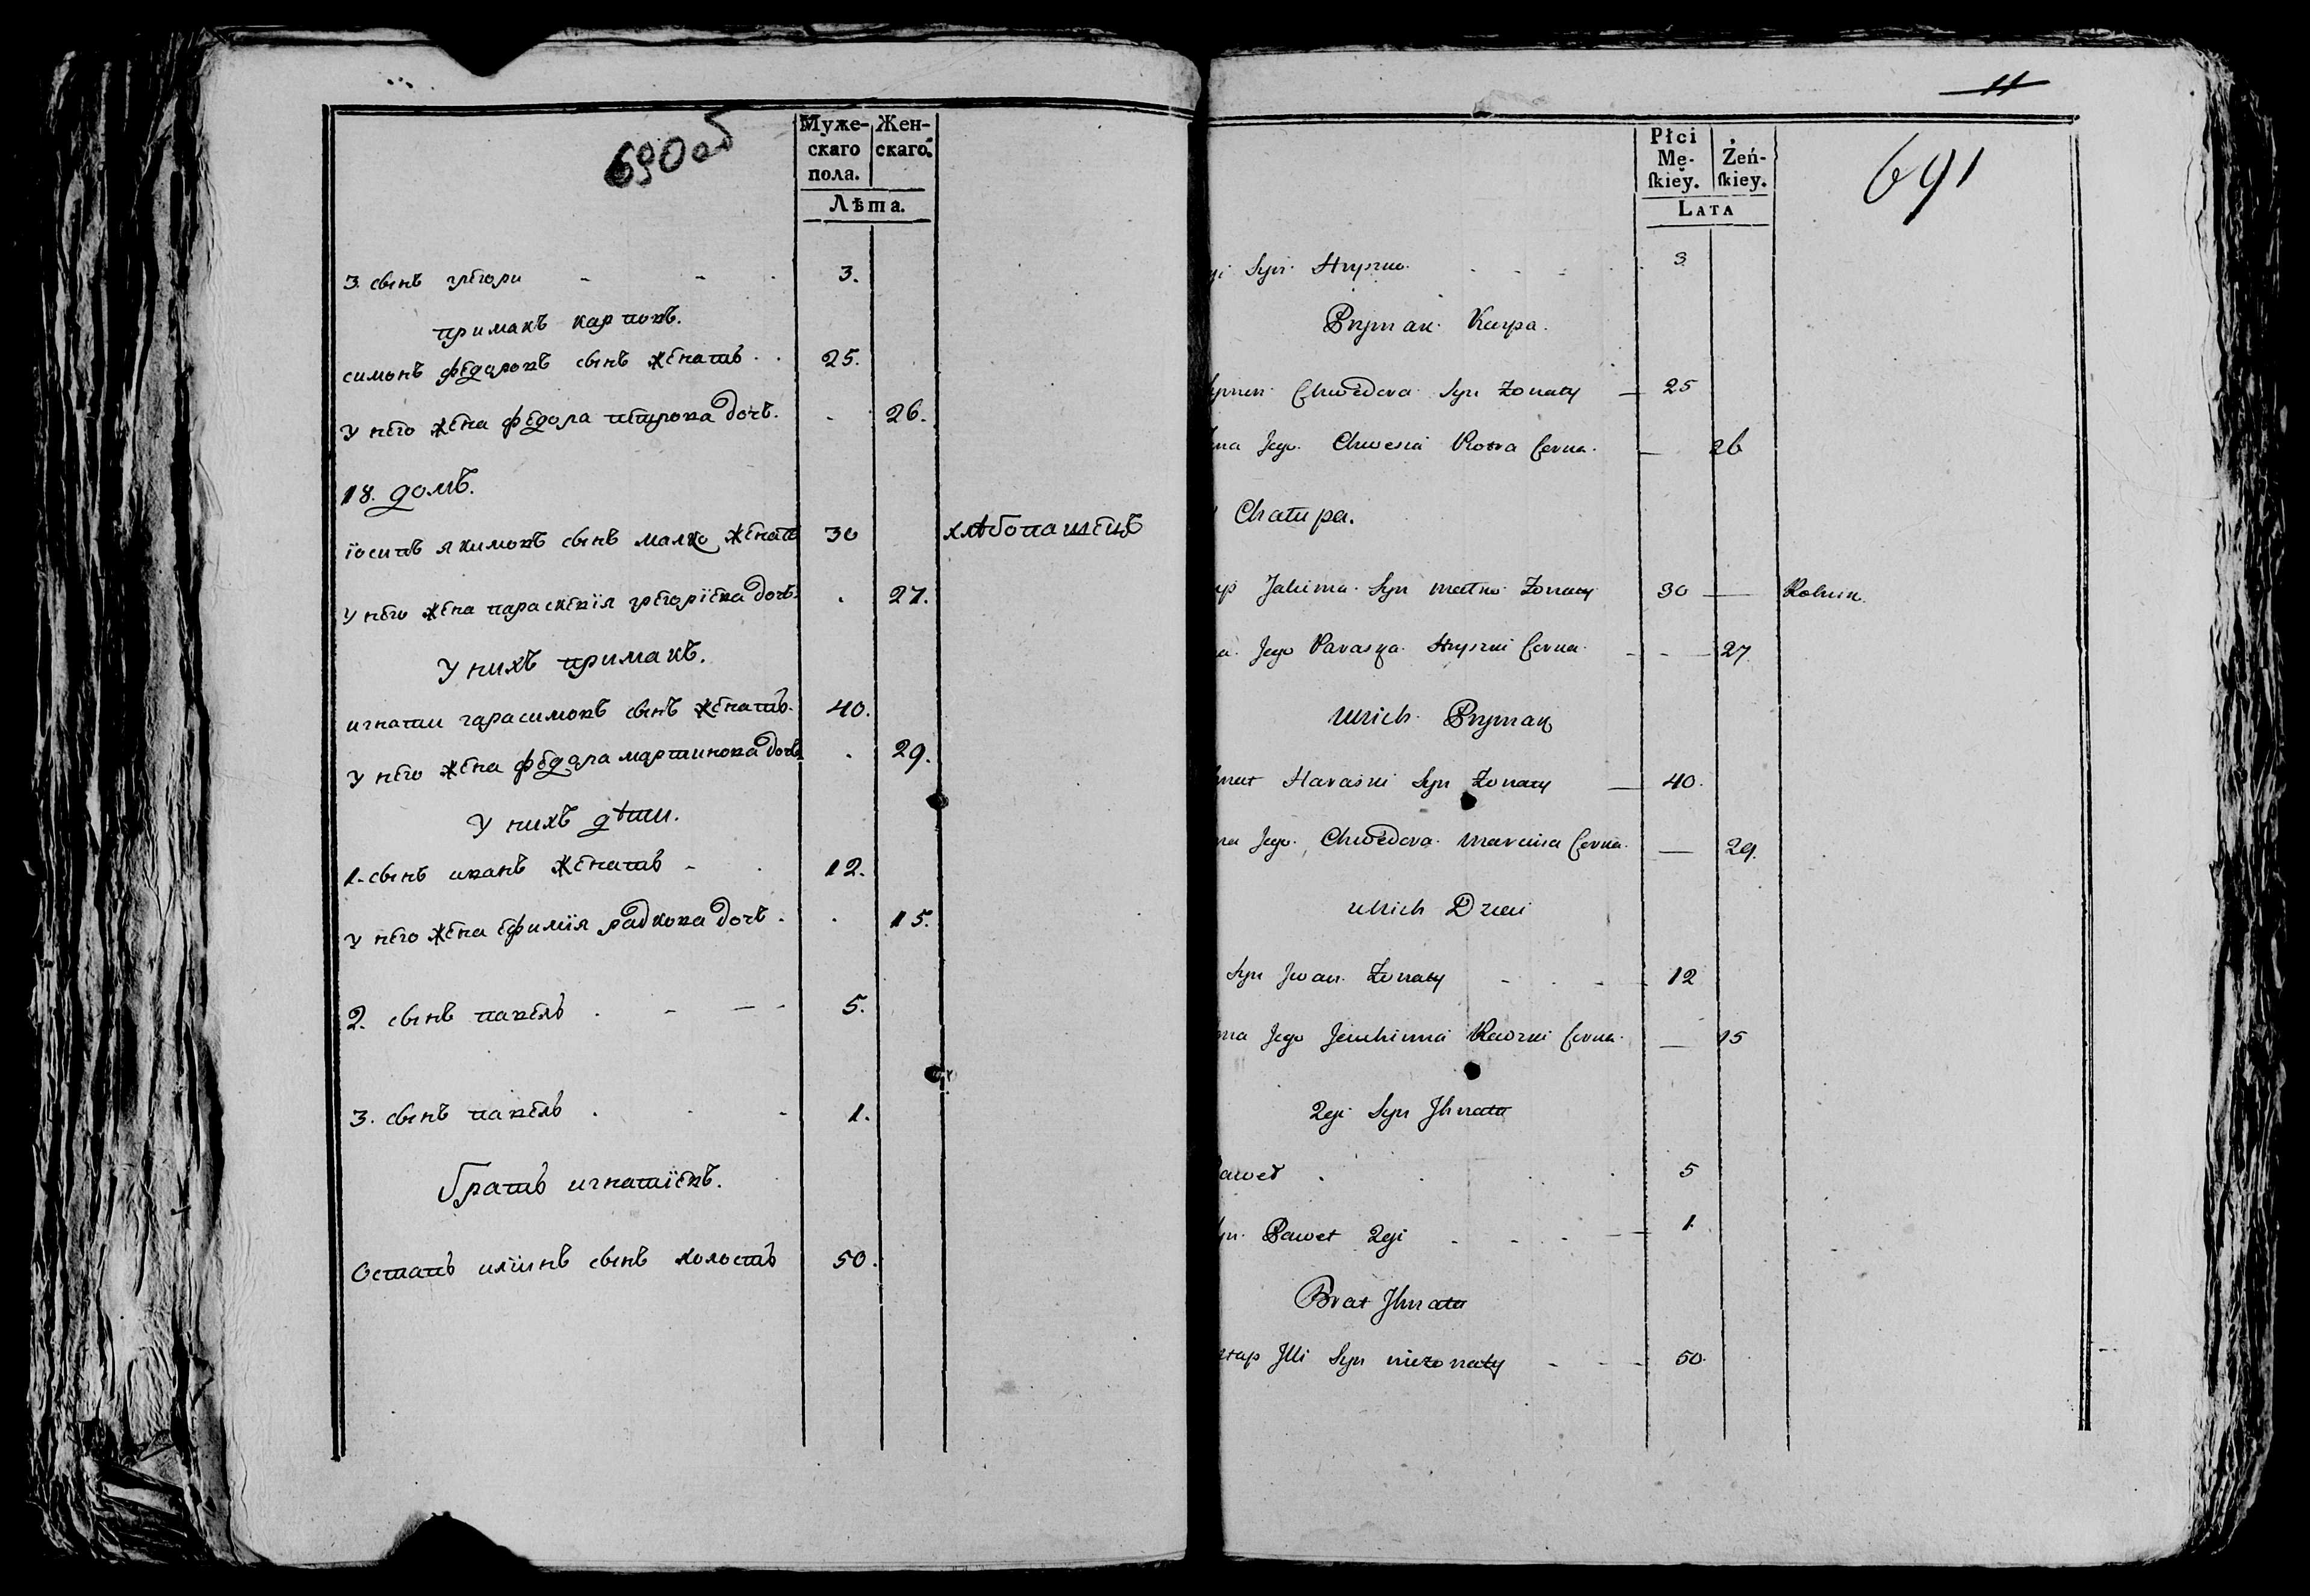 690 об
Муже-
скаго
пола.
Жен-
скаго.
Лѣта.
3. сынъ грегори - - . 3.
примакъ карповъ.
симонъ федоровъ сынъ женатъ . . 25.
у него жена федора петрова дочь. . 26.
18. домъ.
іосипъ якимовъ сынъ малко женатъ 30 хлѣбопашецъ
у него жена параскевія грегоріева дочь. . 27.
у нихъ примакъ.
игнати гарасимовъ сынъ женатъ. 40.
у него жена федора мартинова дочь . 29.
у нихъ дѣти.
1. сынъ иванъ женатъ - . 12.
у него жена ефимія радкова дочь . . 15.
2. сынъ павелъ . - — - 5.
3. сынъ павелъ . . - 1.
братъ игнатіевъ.
Остапъ иліинъ сынъ холостъ 50.
11
691
Płci
Mę-
ſkiey.
Żeń-
ſkiey.
LATA
gi Syn Hryszko. . - - . 3
Pryman Karpa.
ymen Chwedora Syn Żonaty — 25
na Jego Chwesia Piotra Corka. — 26
Chałupa.
up Jakima Syn Małko Żonaty 30 — Rolnik
a Jego Paraska Hryszki Corka. - - — 27
u nich Pryman
hnat Haraśki Syn Żonaty — 40.
na Jego Chwedora Marcina Corka. — 29.
u nich Dzieci
Syn Jwan Żonaty - . - 12
na Jego Jeuchimia Radzki Corka. — 15
2gi Syn Jhnata
aweł . . . . 5
yn Paweł 2gi . - . — 1.
Brat Jhnata
stap Jlli Syn nieżonaty - - - 50.